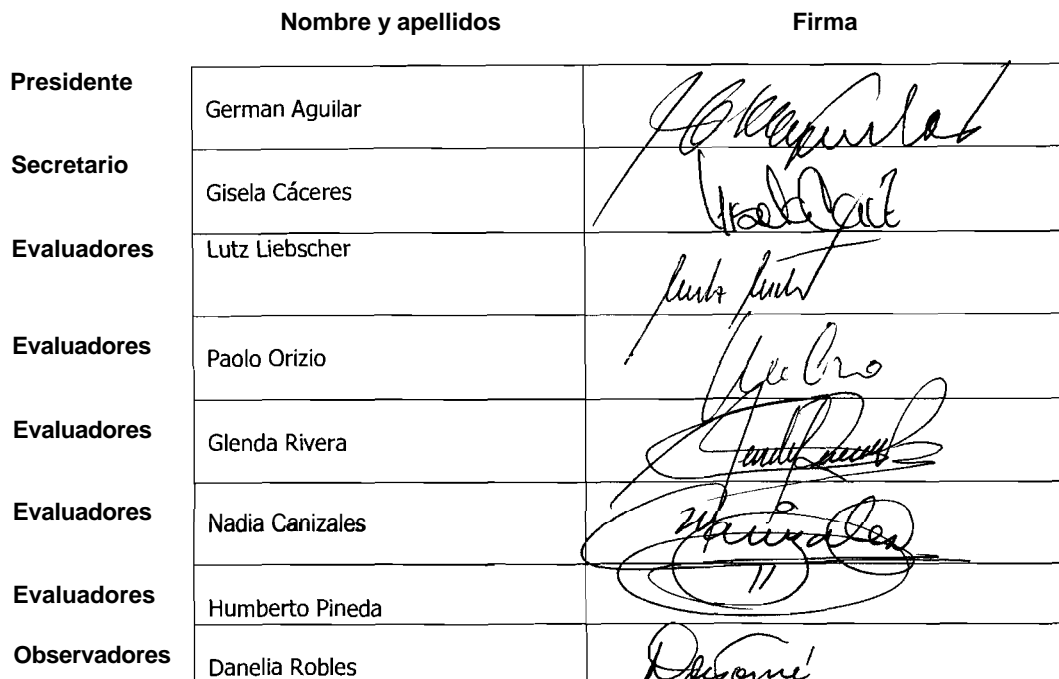 Nombre y apellidos Firma
Presidente German Aguilar
Secretario Gisela Cáceres
Evaluadores Lutz Liebscher
Evaluadores Paolo Orizio
Evaluadores Glenda Rivera
Evaluadores Nadia Canizales
Evaluadores Humberto Pineda
Observadores Danelia Robles